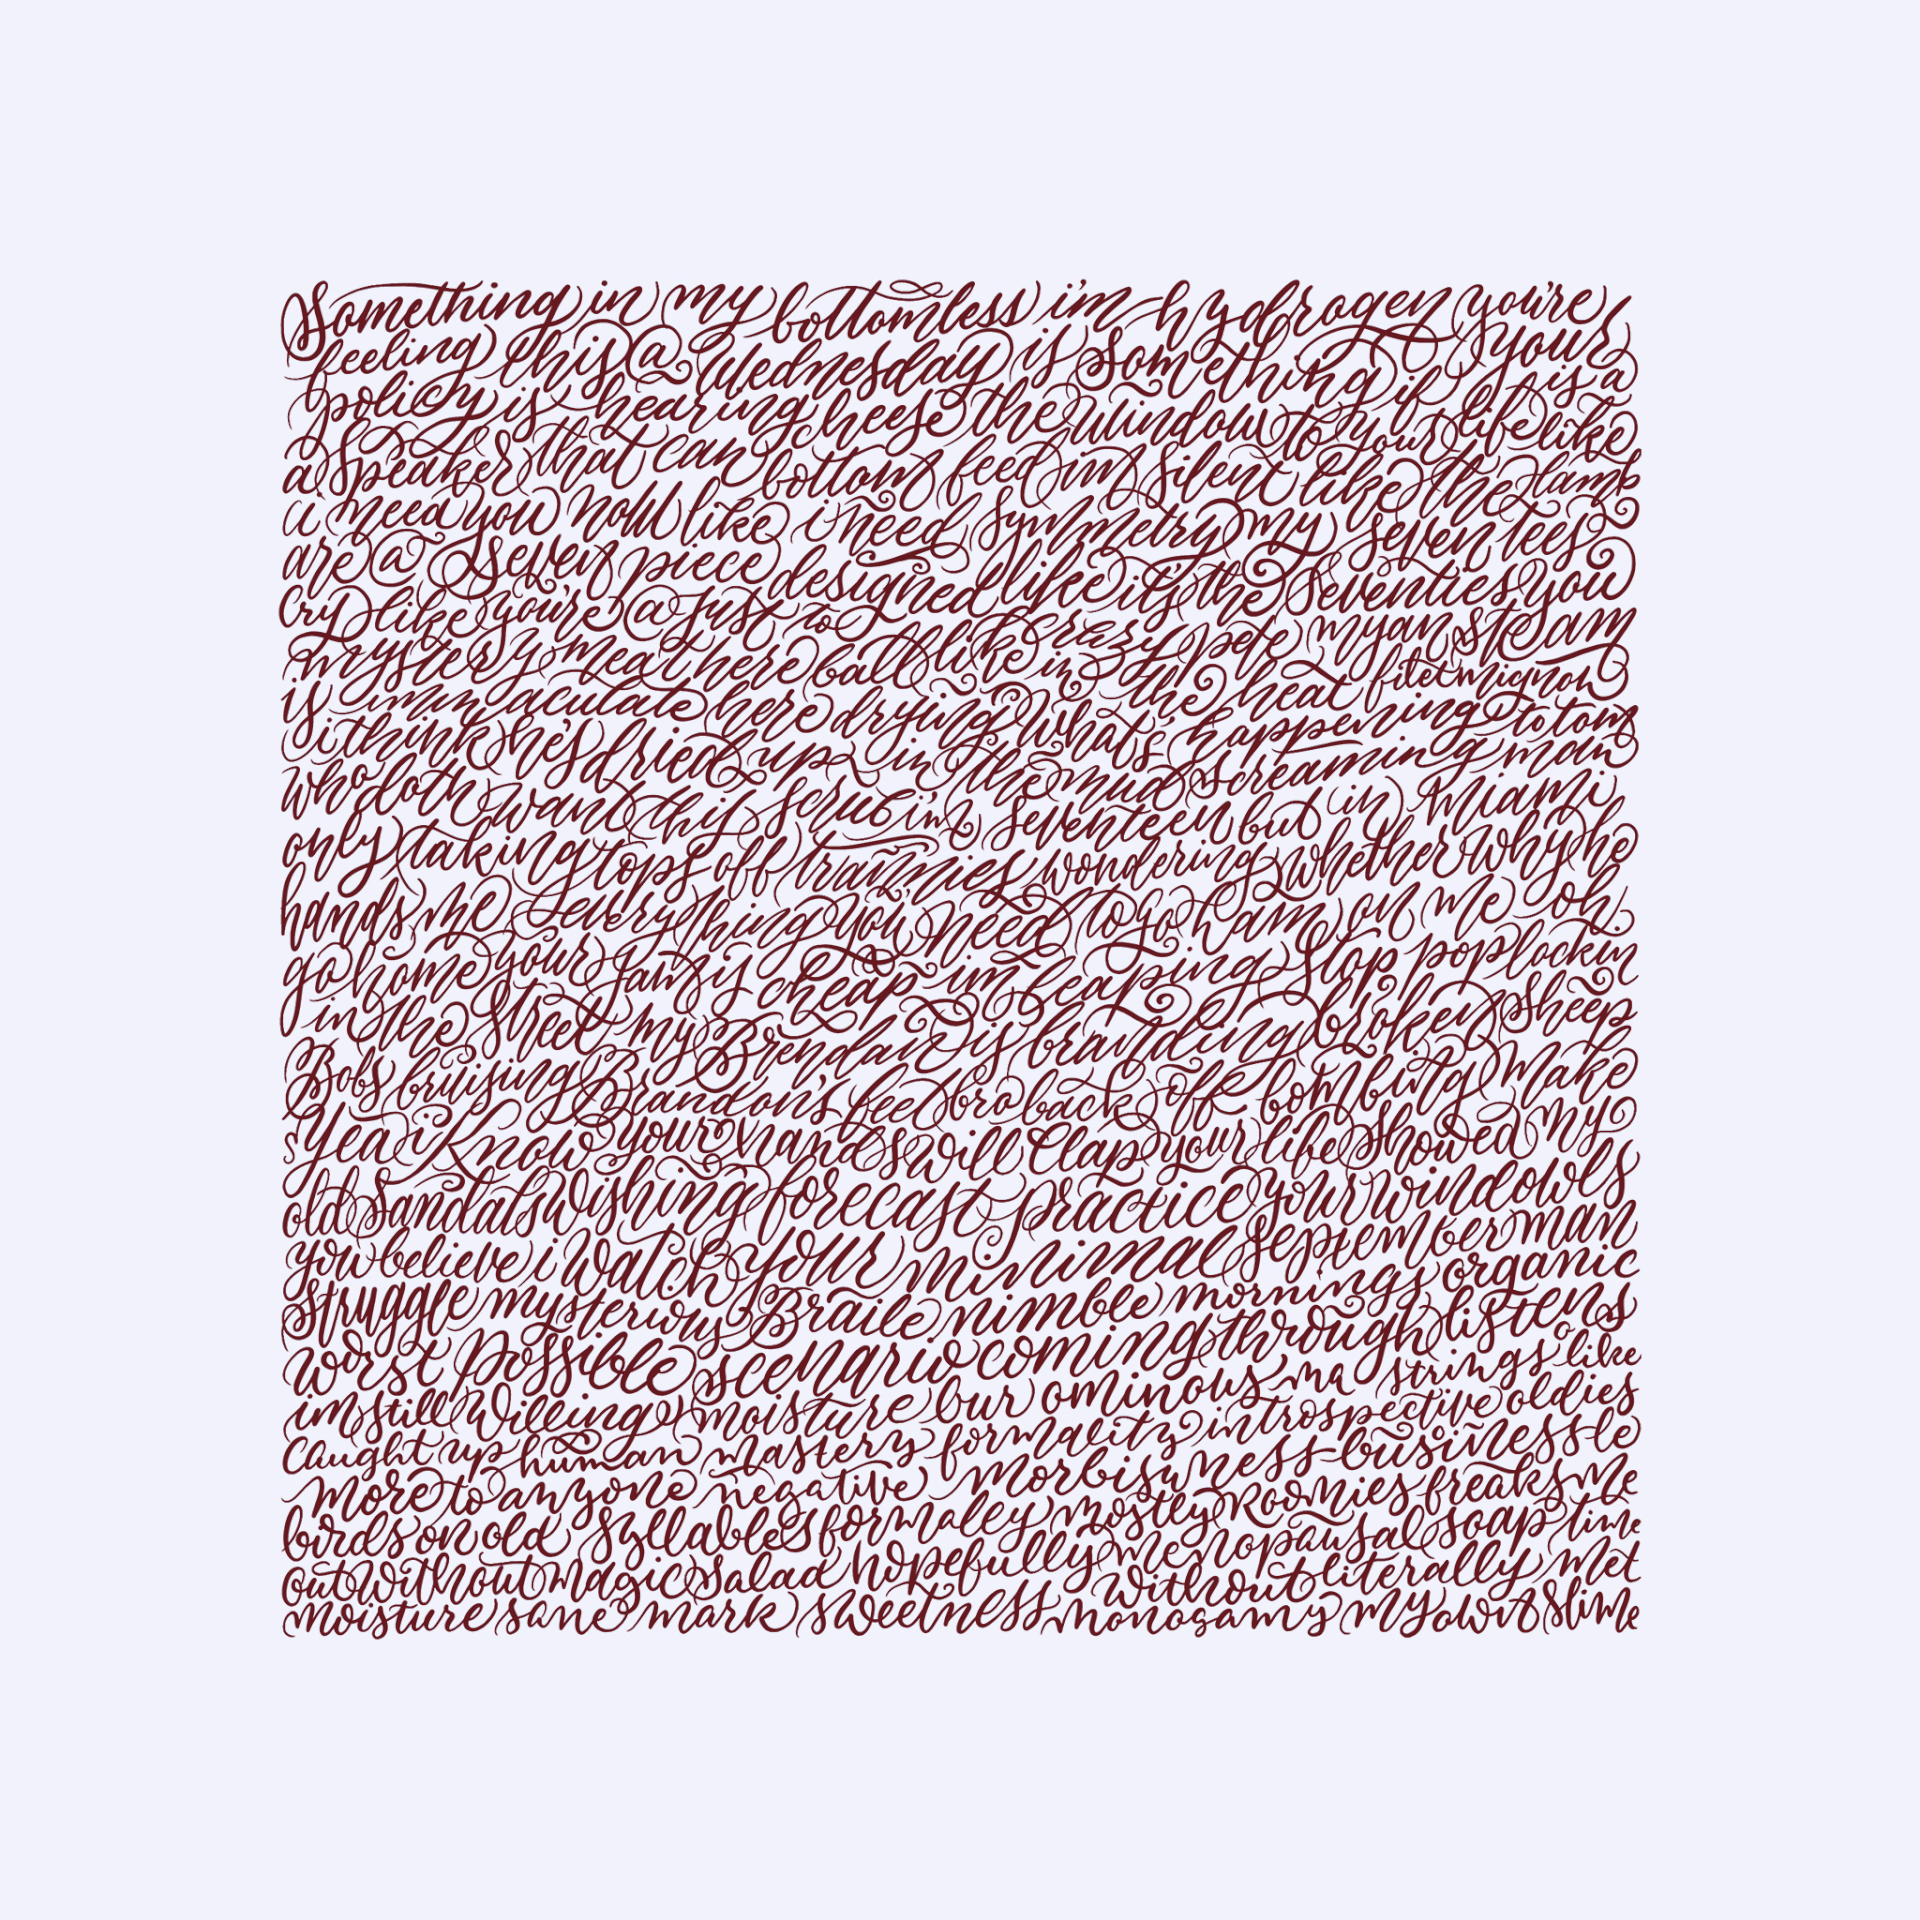 Something in my bottomless i'm hydrogen you're
feeling this a Wednesday is Something if your
policy is hearing cheese the window to your life is a
a Speaker that can bottom feed im silent like the lamb
i need you now like i need symmetry my seven tees
are a seven piece designed like it's the seventies you
cry like you're a just to crazy pete myan steam
mystery meat here ball like in the heat filet mignon
is immaculate here drying what's happening to tom
i think he's dried up in the mud screaming man
who doth want this scruc i'm seventeen but in miami
only taking tops off trannies wondering whether why he
hands me everything you need to go ham on me oh.
go home your jam is cheap im leaping Stop poplockin
in the Street my Brendan is branding broken sheep
Bobs bruising Brandon's feet bro back off bombing make
Yea i Know your hands will Clap your life showed my
old Sandals wishing forecast practice your windowls
you believe i watch your minimal September man
struggle mysterious Braile nimble mornings organic
worst possible scenario coming through listens
im still Willing moisture bur ominous ma strings like
Caught up human mastery formality introspective oldies
more to anyone negative morbisuness business le
birds on old syllables formaley mostly Roomies freaks me
out without magic Salad hopefully menopausal soap time
moisture sane mark sweetness without literally met
monogamy my own slime